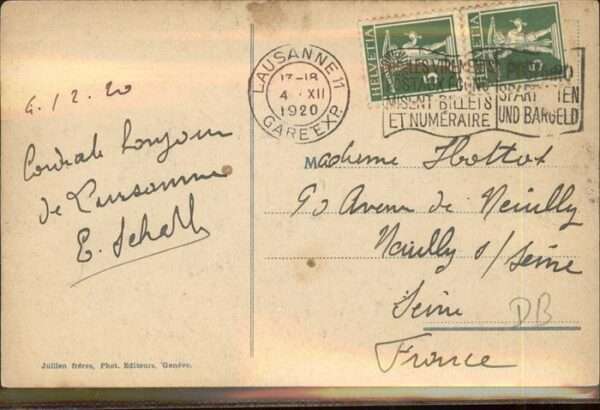 4.12.20
Cordiale bonjour
de Lausanne
E. Schall
LAUSANNE 11
17-18
4. XII
1920
GARE EXP.
HELVETIA
5
HELVETIA
5
ET NUMÉRAIRE
UND BARGELD
Madame Hottot
90 Avenue de Neuilly
Neuilly s/Seine
Seine
DB
France
Jullien frères, Phot. Editeurs, Genève.